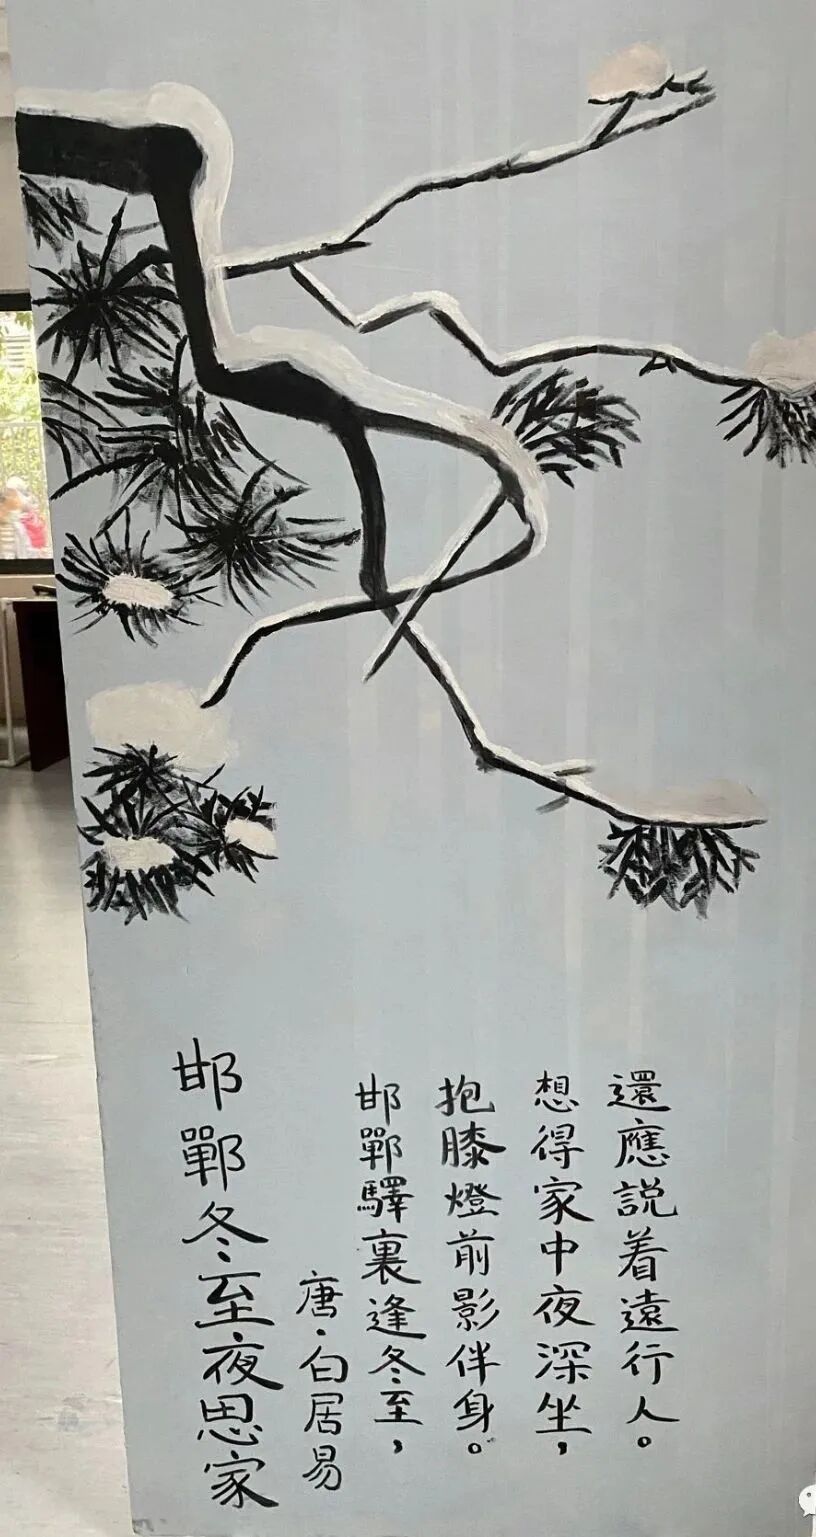 邯鄲冬至夜思家
唐·白居易
邯鄲驛裏逢冬至，
抱膝燈前影伴身。
想得家中夜深坐，
還應説着遠行人。